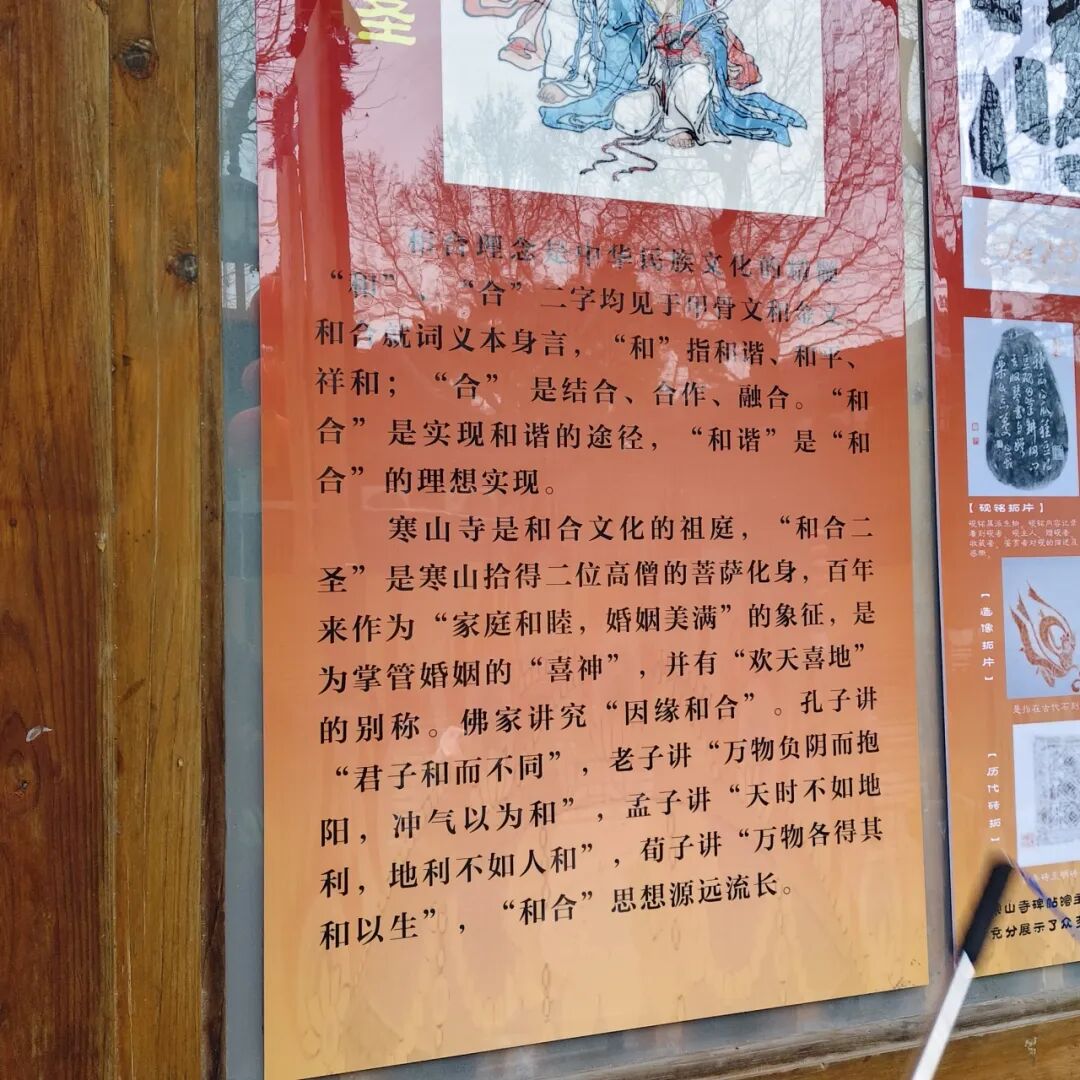 圣
和合理念是中华民族文化的精髓
“和”、“合”二字均见于甲骨文和金文，
和合就词义本身言，“和”指和谐、和平、
祥和；“合”是结合、合作、融合。“和
合”是实现和谐的途径，“和谐”是“和
合”的理想实现。
寒山寺是和合文化的祖庭，“和合二
圣”是寒山拾得二位高僧的菩萨化身，百年
来作为“家庭和睦，婚姻美满”的象征，是
为掌管婚姻的“喜神”，并有“欢天喜地”
的别称。佛家讲究“因缘和合”。孔子讲
“君子和而不同”，老子讲“万物负阴而抱
阳，冲气以为和”，孟子讲“天时不如地
利，地利不如人和”，荀子讲“万物各得其
和以生”，“和合”思想源远流长。
【砚铭拓片】
【造像拓片】
是指在古代石刻
【历代砖拓】
山寺碑帖馆
充分展示了众